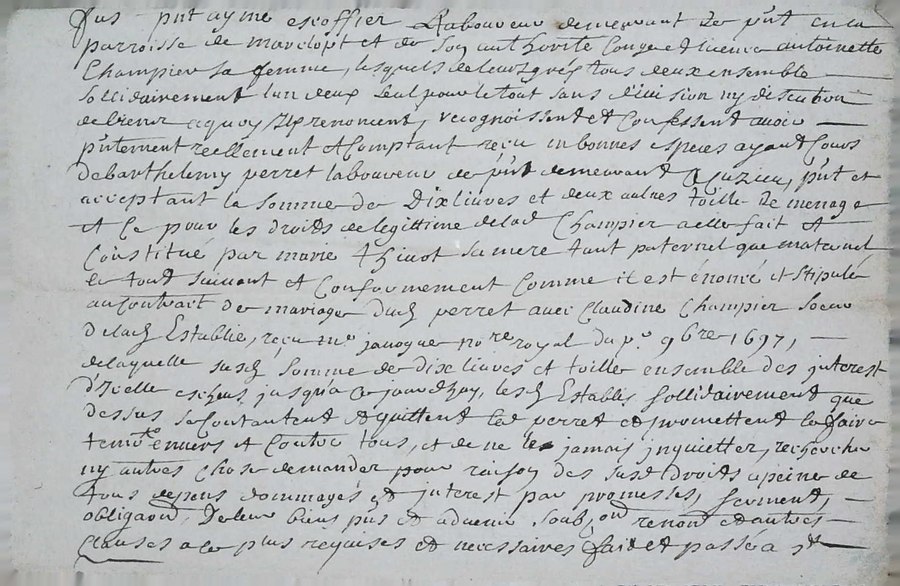 fus - pnt ayme escoffier Laboureur demeurant de pnt en la
parroisse de marclopt et de son authorite Conge et licence antoinette
Champier sa femme, lesquels de leurs grés tous deux ensemble
sollidairement lun deux seul pour le tout sans division ny discution
de biens a quoy Ilz renoncent, recognoissent et Confessent avoir
pntement reellement et Comptant reçu en bonnes especes ayant Cours
de barthelemy perret laboureur de pnt demeurant a Cuzieu, pnt et
acceptant la somme de Dix livres et deux aulnes toille de menage
et Ce pour les droits de legittime de lad Champier a elle fait et
Constitué par marie thinot sa mere tant paternel que maternel
le tout suivant et Conformement Comme il est énoncé et stipulé
au Contract de mariage dud perret avec Claudine Champier soeur
de lad Establie, reçu me janoque nore royal du po 9bre 1697,
de laquelle susd somme de dix livres et toille ensemble des interest
d'Icelle escheus jusqua Ce jourdhuy, lesd Establis sollidairement que
dessus se Contantent et quittent led perret et promettent le faire
tenir envers et Contre tous, et de ne le jamais inquietter, rechercher
ny autres chose demander pour raison des susd droits a peine de
tous depens dommages et interest par promesses, serment,
obligaon, De leur biens pns et advenir soub, on renont et autres
Clauses a ce plus requises et necessaires fait et passé a st